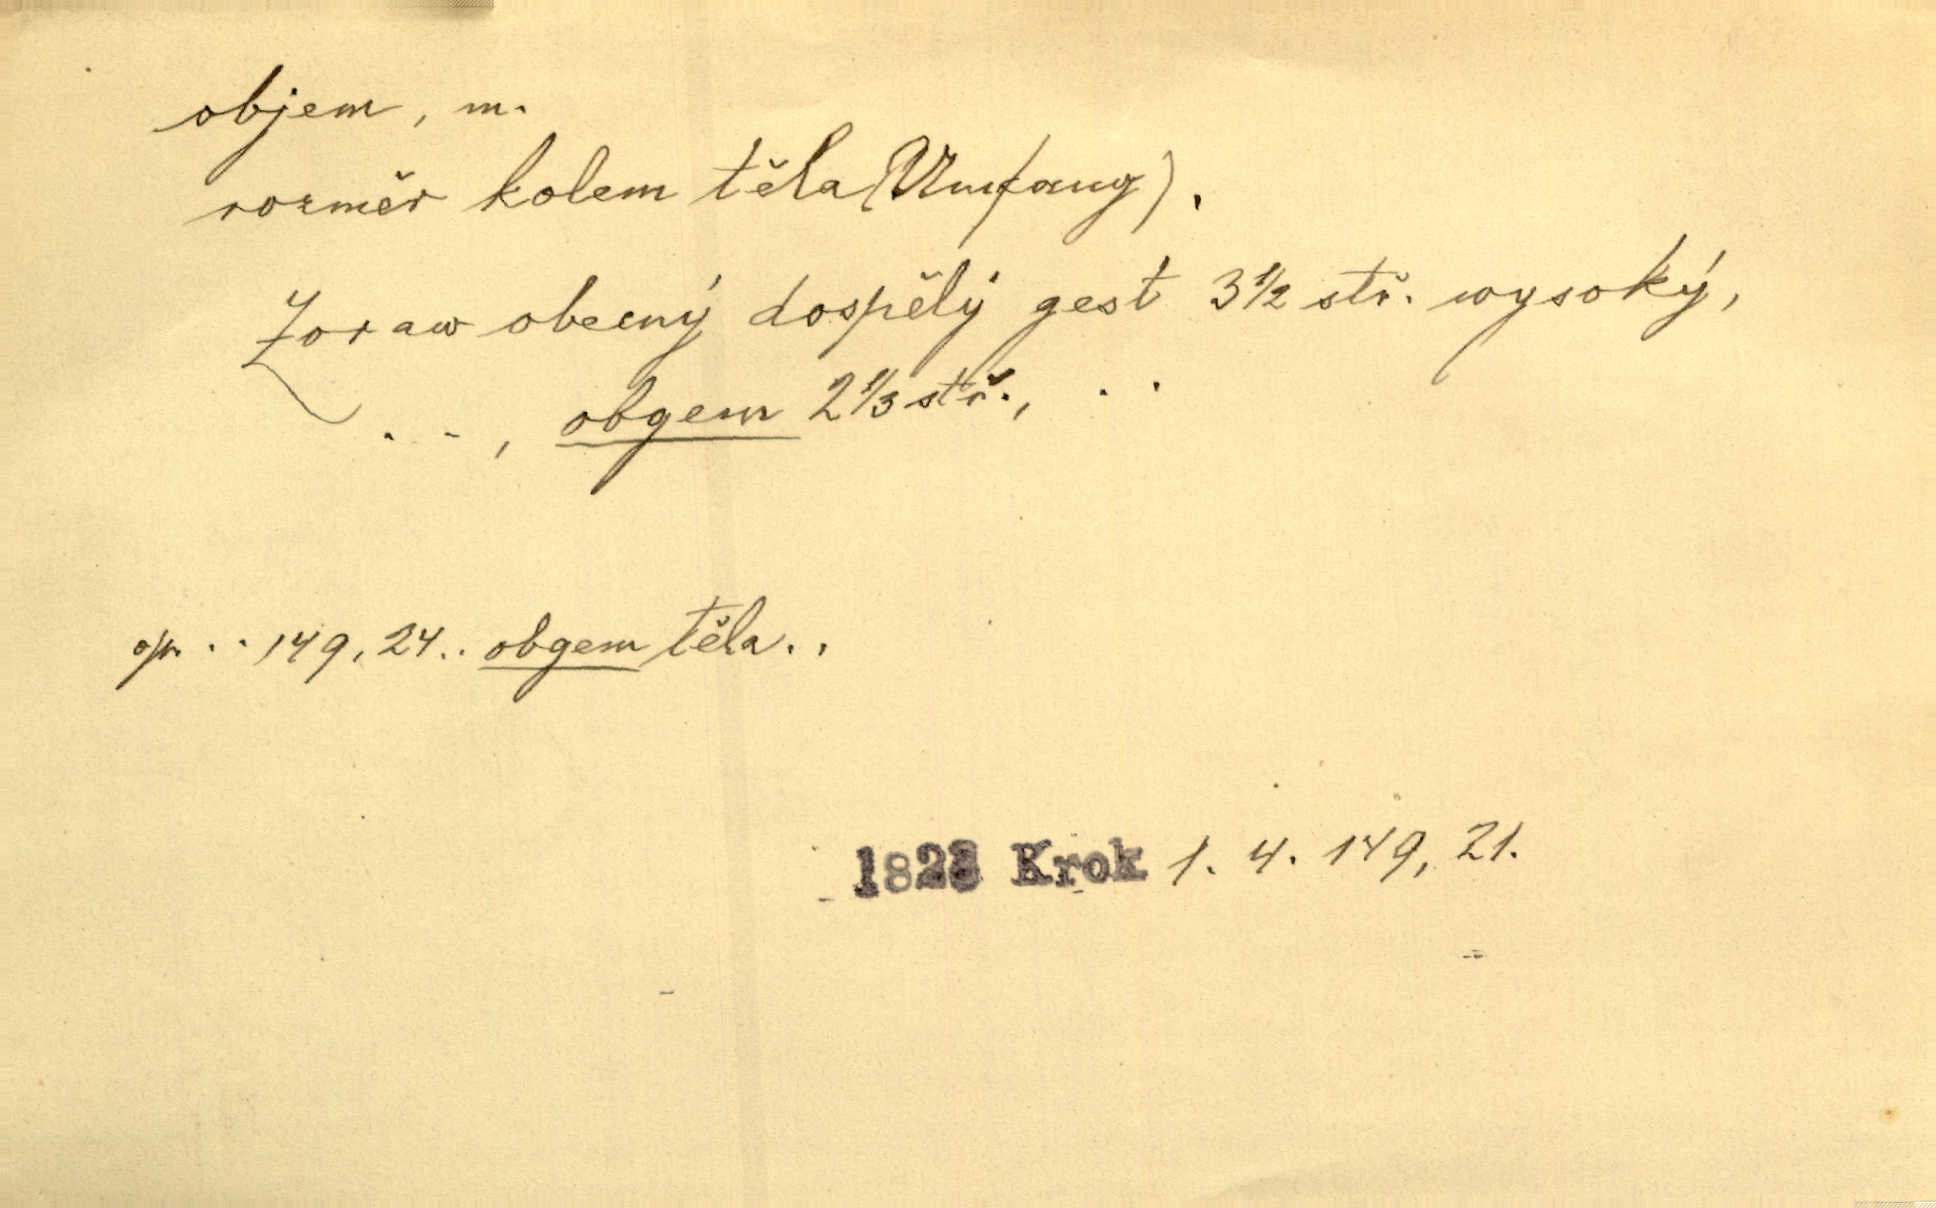 objem, m.
rozměr kolem těla (Umfang).
Zoraw obecný dospělý gest 3 1/2 stř. wysoký,
. . , obgem 2 1/3 stř., . .
op. . . 149, 24 . . obgem těla . .
1823 Krok 1. 4. 149, 21.